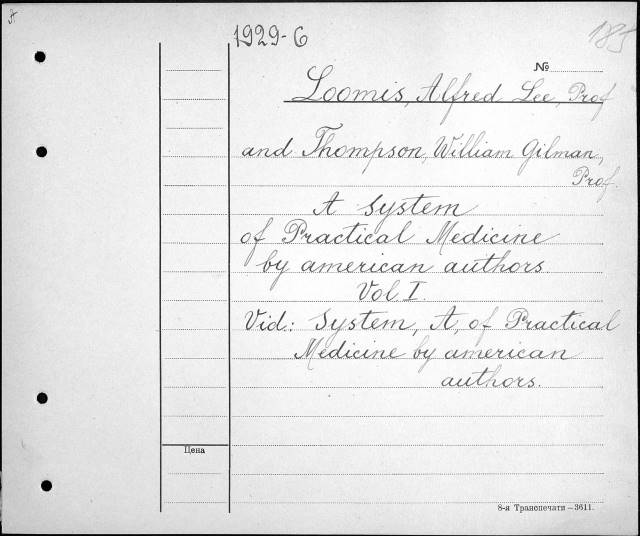 1929-6
185
№
Loomis, Alfred Lee, Prof
and Thompson, William Gilman,
Prof.
A System
of Practical Medicine
by american authors.
Vol. I.
Vid.: System, A, of Practical
Medicine by american
authors.
Цена
8-я Транспечати – 3611.